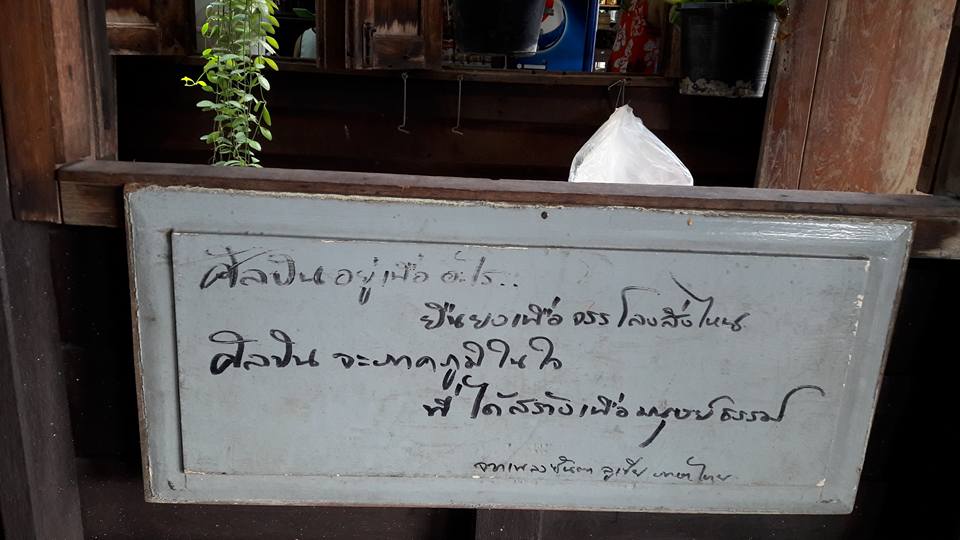 ศิลปิน อยู่เพื่อ อะไร..
ยืนยงเพื่อ จรรโลงสิ่งไหน
ศิลปิน จะภาคภูมิในใจ
ที่ได้สร้างเพื่อมนุษย์ธรรม
จากเพลงซันตา ลูเซีย ภาษาไทย